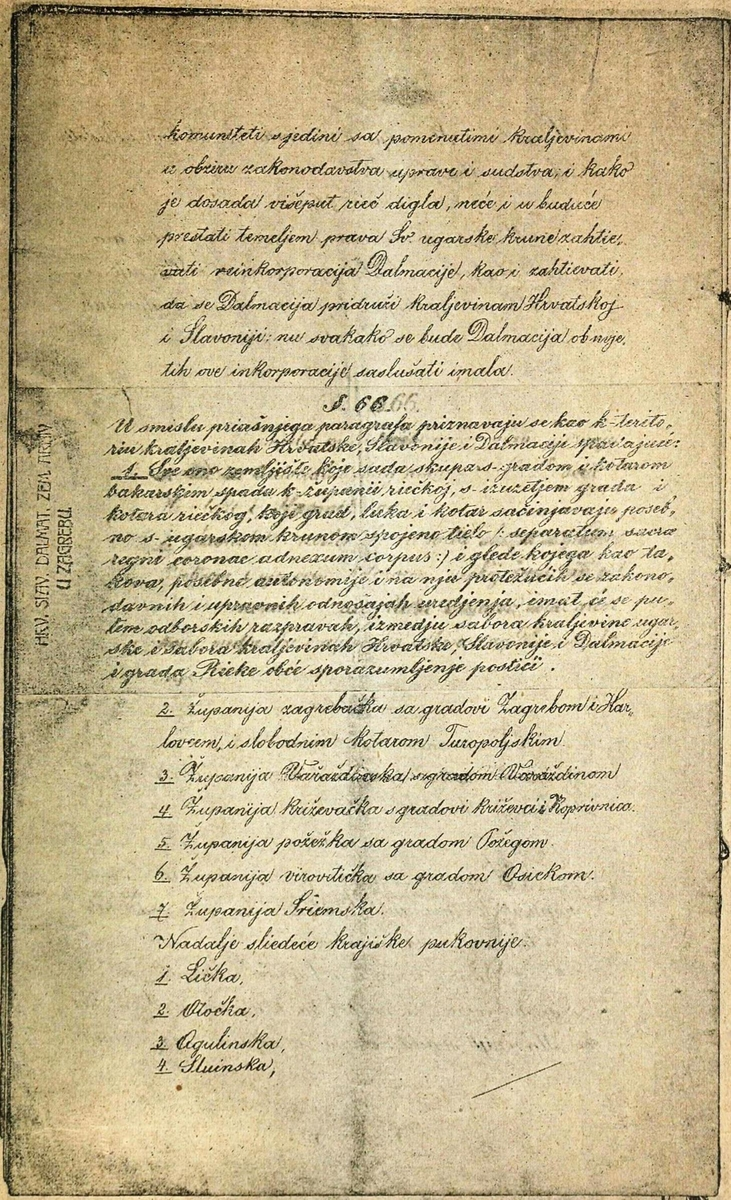 komuniteti sjedini sa pomenutimi kraljevinami
u obziru zakonodavstva uprave i sudstva; i kako
je dosada višeput rieč digla, neće i u buduće
prestati temeljem prava Sv. ugarske krune zahtie,
vati reinkorporacija Dalmacije, kao i zahtievati,
da se Dalmacija pridruži kraljevinam Hrvatskoj
i Slavoniji; nu svakako se bude Dalmacija ob uvje,
tih ove inkorporacije saslušati imala.
§. 66. 66.
U smislu priašnjega paragrafa priznavaju se kao k-terito,
riu kraljevinah Hrvatske, Slavonije i Dalmacije spadajuće:
1. Sve ono zemljište koje sada skupa s-gradom i kotarom
bakarskim spada k-županii riečkoj, s-izuzetjem grada i
kotara riečkog, koji grad, luka i kotar sačinjavaju poseb,
no s-ugarskom krunom spojeno tielo (: separatum sacra
regni coronae adnexum corpus:) i glede kojega kao ta,
kova, posebne autonomije i na nju protežućih se zakono,
davnih i upravnih odnošajah uredjenja, imat će se pu,
tem odborskih razpravah, izmedju sabora kraljevine ugar,
ske i sabora kraljevinah Hrvatske, Slavonije i Dalmacije
i grada Rieke obće sporazumljenje postići.
2. Županija zagrebačka sa gradovi Zagrebom i Kar,
lovcem, i slobodnim kotarom Turopoljskim.
3. Županija Varaždinska s gradom Varaždinom
4 Županija križevačka s gradovi križevci i Koprivnica.
5. Županija požežka sa gradom Požegom.
6. Županija virovitička sa gradom Osiekom.
7. Županija Sriemska.
Nadalje sliedeće krajiške pukovnije:
1. Lička,
2. Otočka,
3 Ogulinska,
4. Sluinska,
HRV. SLAV. DALMAT. ZEM. ARKIV
U ZAGREBU.